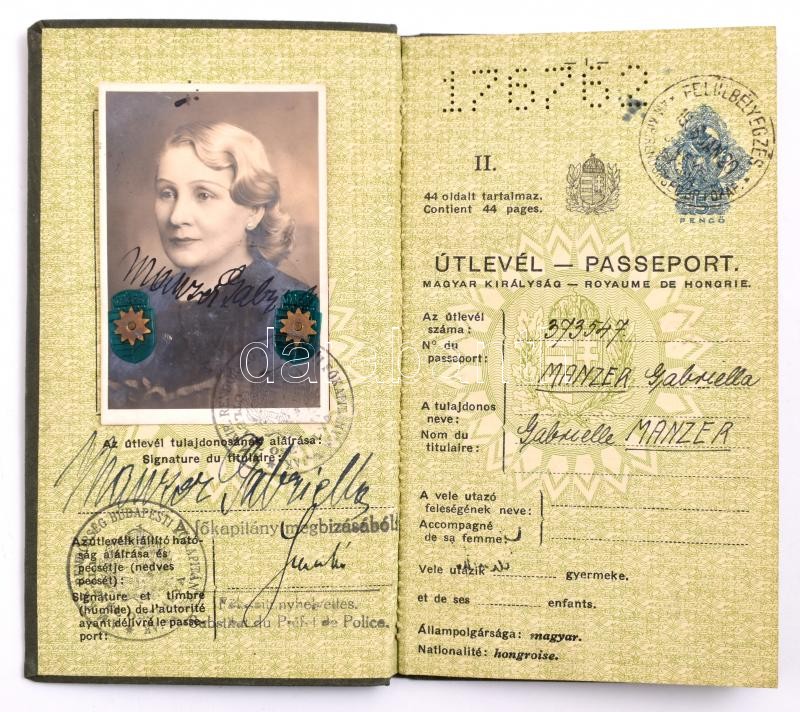 Manzer Gabriella
Az útlevél tulajdonosának aláírása:
Signature du titulaire:
Manzer Gabriella
főkapitány megbizásából:
Az útlevélkiállító ható-
ság aláírása és
pecsétje (nedves
pecsét):
Signature et timbre
(humide) de l'autorité
ayant délivré le passe-
port:
Főkapitányhelyettes.
Substitut du Préfet de Police.
176752
FELÜLBÉLYEGZÉS
II.
44 oldalt tartalmaz.
Contient 44 pages.
PENGŐ
ÚTLEVÉL — PASSEPORT.
MAGYAR KIRÁLYSÁG — ROYAUME DE HONGRIE.
Az útlevél
száma:
373547
N° du
passeport:
MANZER Gabriella
A tulajdonos
neve:
Gabrielle MANZER
Nom du
titulaire:
A vele utazó
feleségének neve:
Accompagné
de sa femme:
Vele utazik gyermeke.
et de ses enfants.
Állampolgársága: magyar.
Nationalité: hongroise.